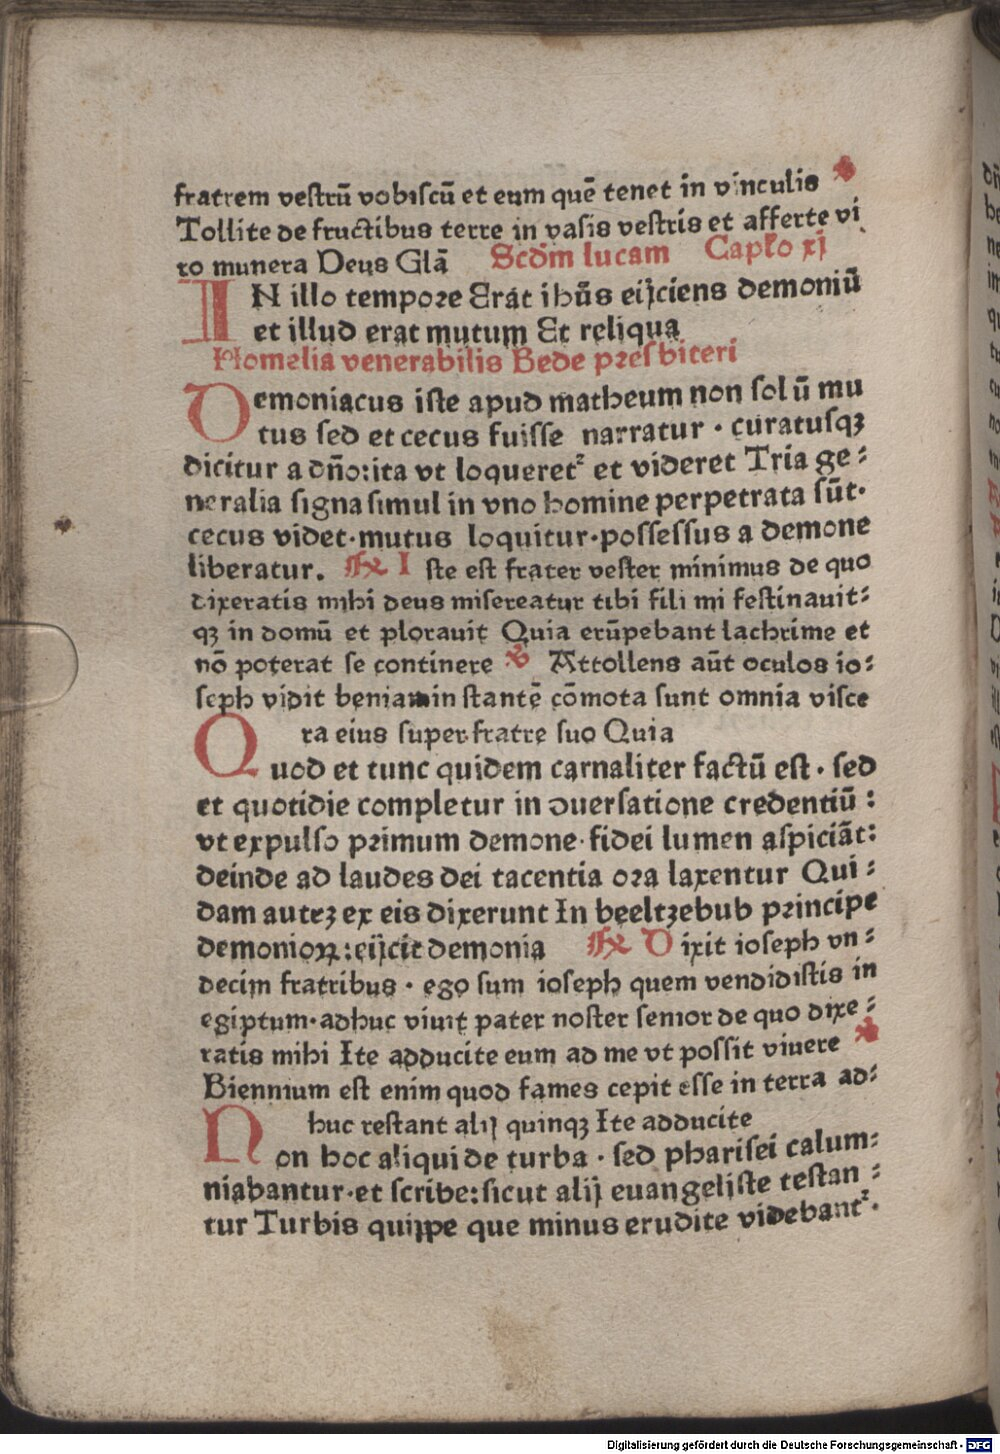 fratrem vestrū vobiscū et eum quē tenet in vinculis ℣
Tollite de fructibus terre in vasis vestris et afferte vi
ro munera Deus Glā Scd'm lucam Cap̄lo xj
IN illo tempore Erat ihūs eijciens demoniū
et illud erat mutum Et reliqua
Homelia venerabilis Bede presbiteri
Demoniacus iste apud matheum non solū mu
tus sed et cecus fuisse narratur · curatusqꝫ
dicitur a dn̄o: ita vt loqueretᷣ et videret Tria ge⸗
neralia signa simul in vno homine perpetrata sūt·
cecus videt · mutus loquitur · possessus a demone
liberatur. ℟ Iste est frater vester minimus de quo
dixeratis mihi deus misereatur tibi fili mi festinauit⸗
qꝫ in domū et plorauit Quia erūpebant lachrime et
nō poterat se continere ℣ Attollens aūt oculos io⸗
seph vidit beniamin stantē cōmota sunt omnia visce
ra eius super fratre suo Quia
Quod et tunc quidem carnaliter factū est · sed
et quotidie completur in ↄuersatione credentiū :
vt expulso primum demone · fidei lumen aspiciāt:
deinde ad laudes dei tacentia ora laxentur Qui⸗
dam auteꝫ ex eis dixerunt In beeltzebub principe
demonioꝝ: eijcit demonia ℟ Dixit ioseph vn⸗
decim fratribus · ego sum ioseph quem vendidistis in
egiptum · adhuc viuit pater noster senior de quo dixe⸗
ratis mihi Ite adducite eum ad me vt possit viuere ℣
Biennium est enim quod fames cepit esse in terra ad⸗
huc restant alij quinqꝫ Ite adducite
Non hoc aliqui de turba · sed pharisei calum⸗
niabantur · et scribe: sicut alij euangeliste testan⸗
tur Turbis quippe que minus erudite videbantᷣ.
Digitalisierung gefördert durch die Deutsche Forschungsgemeinschaft - DFG